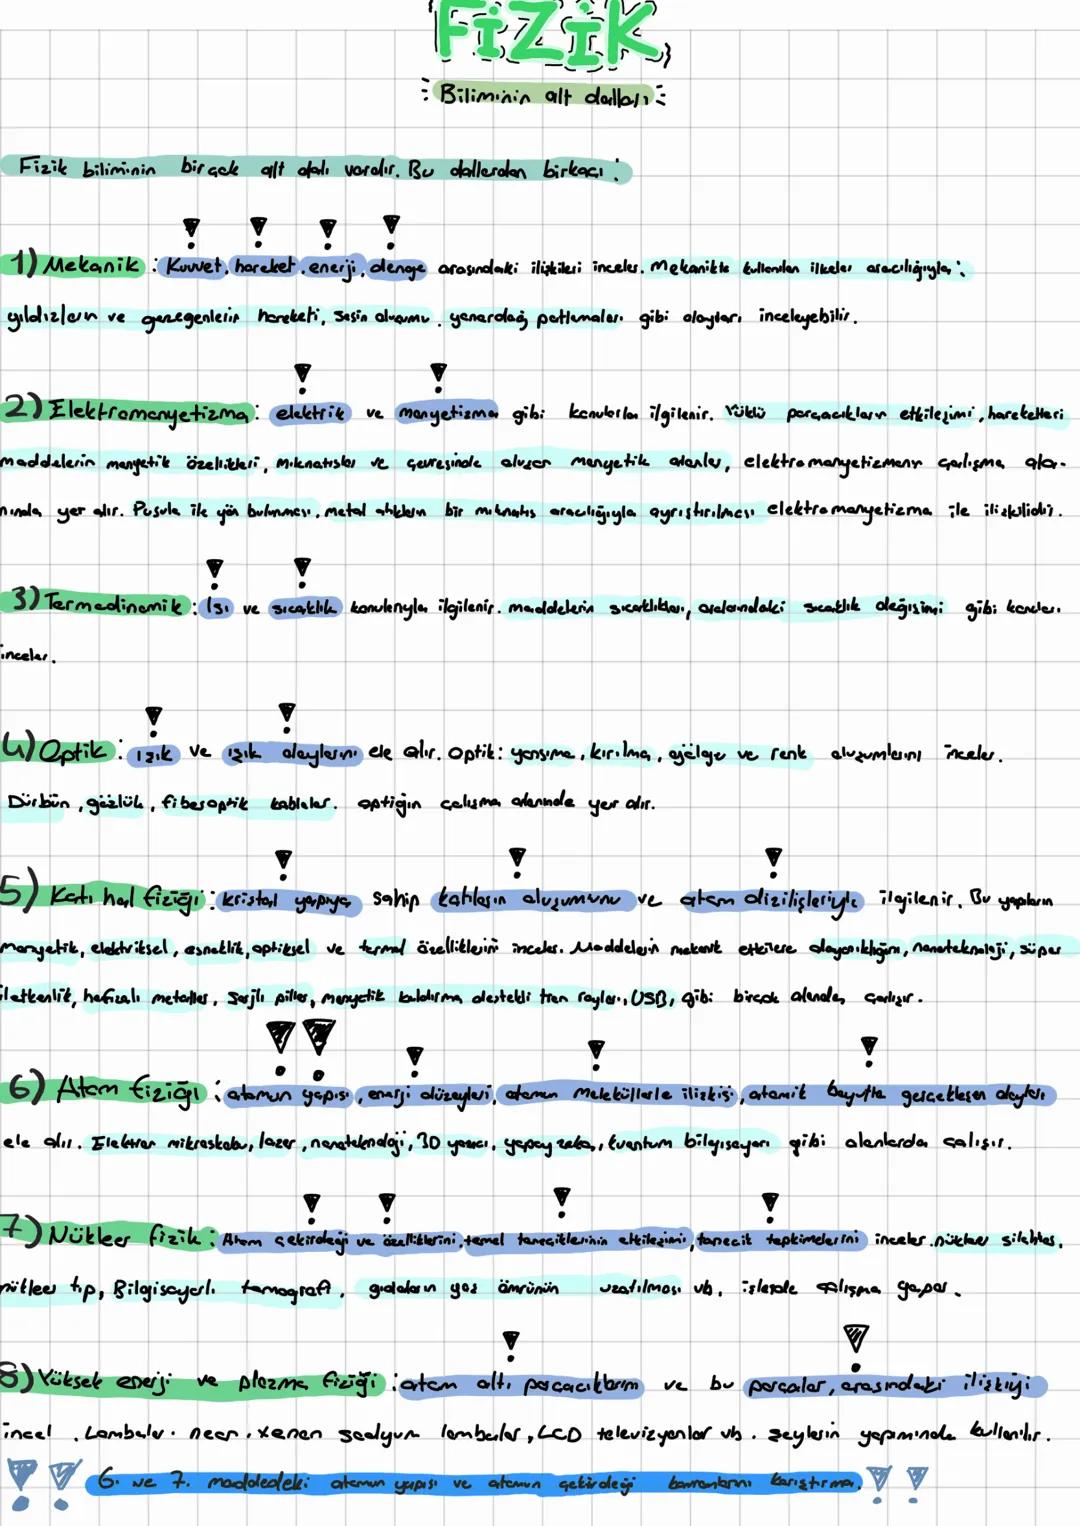 FİZİK
Biliminin alt dalları
Fizik biliminin birçok alt dalı vardır. Bu dallardan birkaçı:
1) Mekanik: Kuvvet, hareket, enerji, denge arasındaki ilişkileri inceler. Mekanikte kullanılan ilkeler aracılığıyla:
yıldızların ve gezegenlerin hareketi, sesin oluşumu, yanardağ patlamaları gibi olayları inceleyebilir.
2) Elektromanyetizma: elektrik ve manyetizma gibi konularla ilgilenir. Yüklü parçacıkların etkileşimi, hareketleri
maddelerin manyetik özellikleri, mıknatıslar ve çevresinde oluşan manyetik alanlar, elektromanyetizmanın çalışma ala-
nında yer alır. Pusula ile yön bulunması, metal atıkların bir mıknatıs aracılığıyla ayrıştırılması elektromanyetizma ile ilişkilidir.
3) Termodinamik: Isı ve sıcaklık konularıyla ilgilenir. maddelerin sıcaklıkları, aralarındaki sıcaklık değişimi gibi konuları
inceler.
4) Optik: ışık ve ışık olaylarını ele alır. Optik: yansıma, kırılma, gölge ve renk oluşumlarını inceler.
Dürbün, gözlük, fiberoptik kablolar. optiğin çalışma alanında yer alır.
5) Katı hal fiziği: kristal yapıya sahip katıların oluşumunu ve atom dizilişleriyle ilgilenir. Bu yapıların
manyetik, elektriksel, esneklik, optiksel ve termal özelliklerini inceler. Maddelerin mekanik etkilere dayanıklılığını, nanoteknoloji, süper
iletkenlik, hafızalı metaller, şarjlı piller, manyetik kaldırma destekli tren rayları, USB, gibi birçok alanda çalışır.
6) Atom fiziği: atomun yapısı, enerji düzeyleri, atomun moleküllerle ilişkisi, atomik boyutta gerçekleşen olayları
ele alır. Elektron mikroskobu, lazer, nanoteknoloji, 3D yazıcı, yapay zeka, kuantum bilgisayarı gibi alanlarda çalışır.
7) Nükleer fizik: Atom çekirdeği ve özelliklerini, temel taneciklerinin etkileşimi, tanecik tepkimelerini inceler. nükleer silahlar,
nükleer tıp, Bilgisayarlı tomografi, gıdaların yaş ömrünün uzatılması vb. işlerde çalışma yapar.
8) Yüksek enerji ve plazma fiziği: atom altı parçacıkların ve bu parçalar, arasındaki ilişkiyi
incel. Lambalar. neon. xenon sodyum lambalar, LCD televizyonlar vb. şeylerin yapımında kullanılır.
6. ve 7. maddedeki atomun yapısı ve atomun çekirdeği kavramlarını karıştırma.